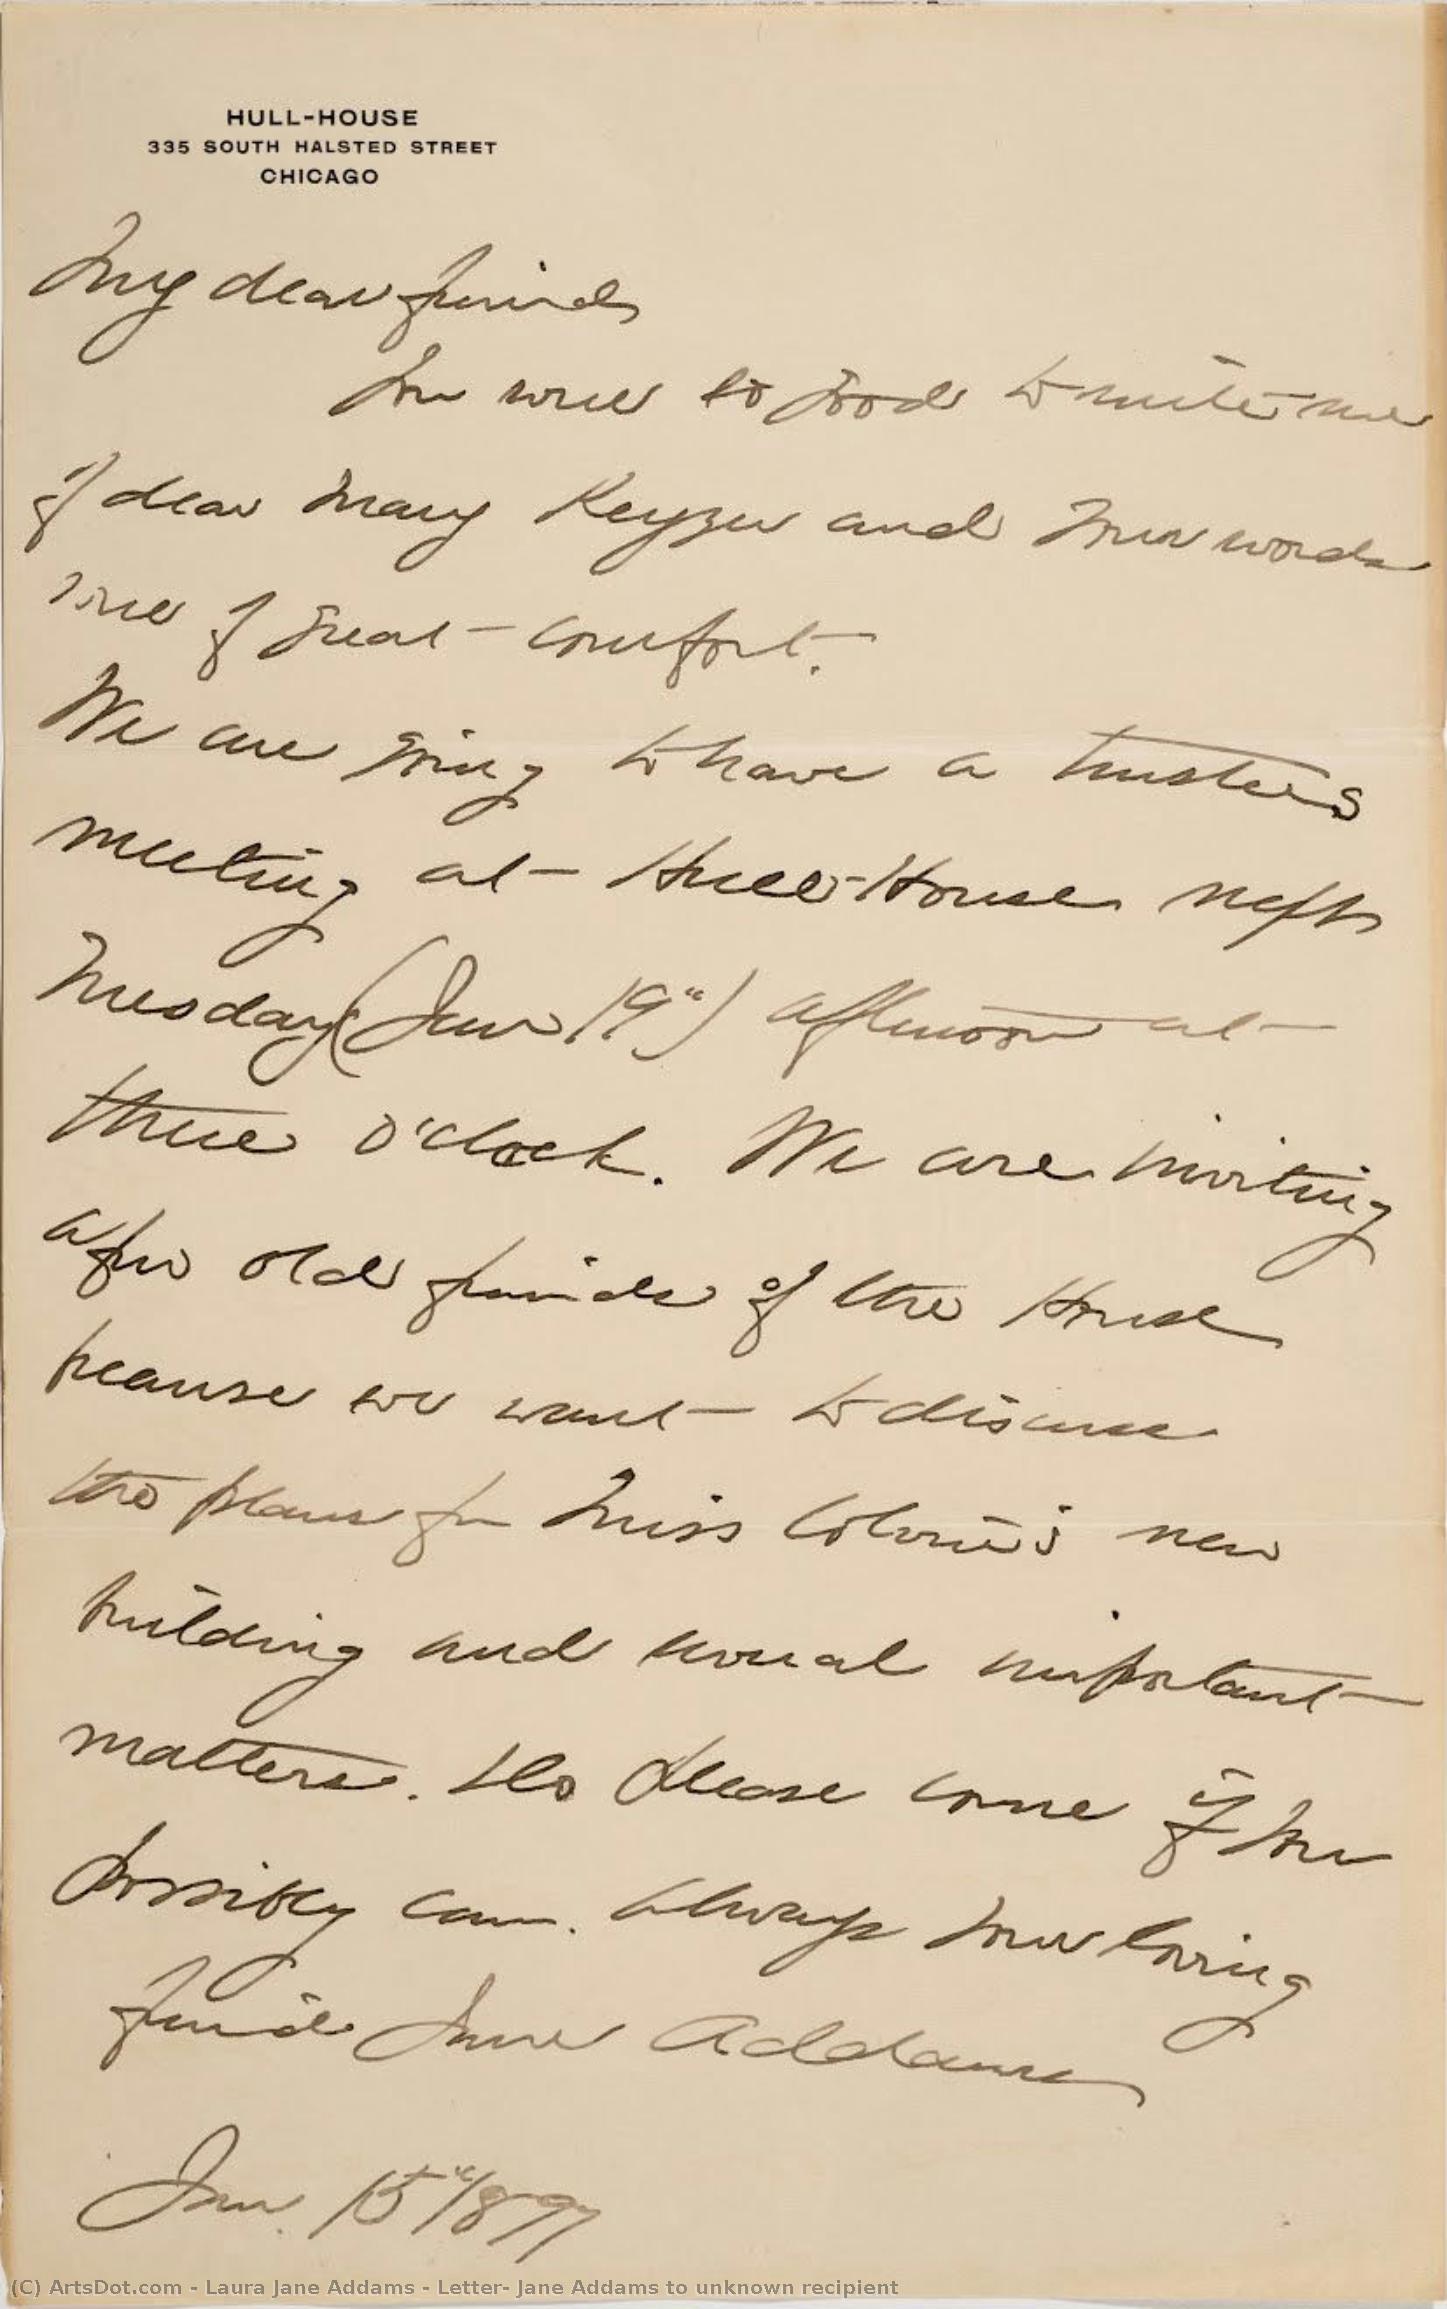 HULL-HOUSE
335 SOUTH HALSTED STREET
CHICAGO
My dear friends
You were so good to write me
of dear Mary Keyzer and your words
were of great comfort.
We are going to have a trustees
meeting at Hull-House next
Tuesday (Jan 19") afternoon at
three o'clock. We are inviting
a few old friends of the House
because we want to discuss
the plans for Miss Colvin's new
building and several important
matters. Do please come if you
possibly can. Always your loving
friend Jane Addams
Jan. 15" 1897
(C) ArtsDot.com - Laura Jane Addams - Letter- Jane Addams to unknown recipient